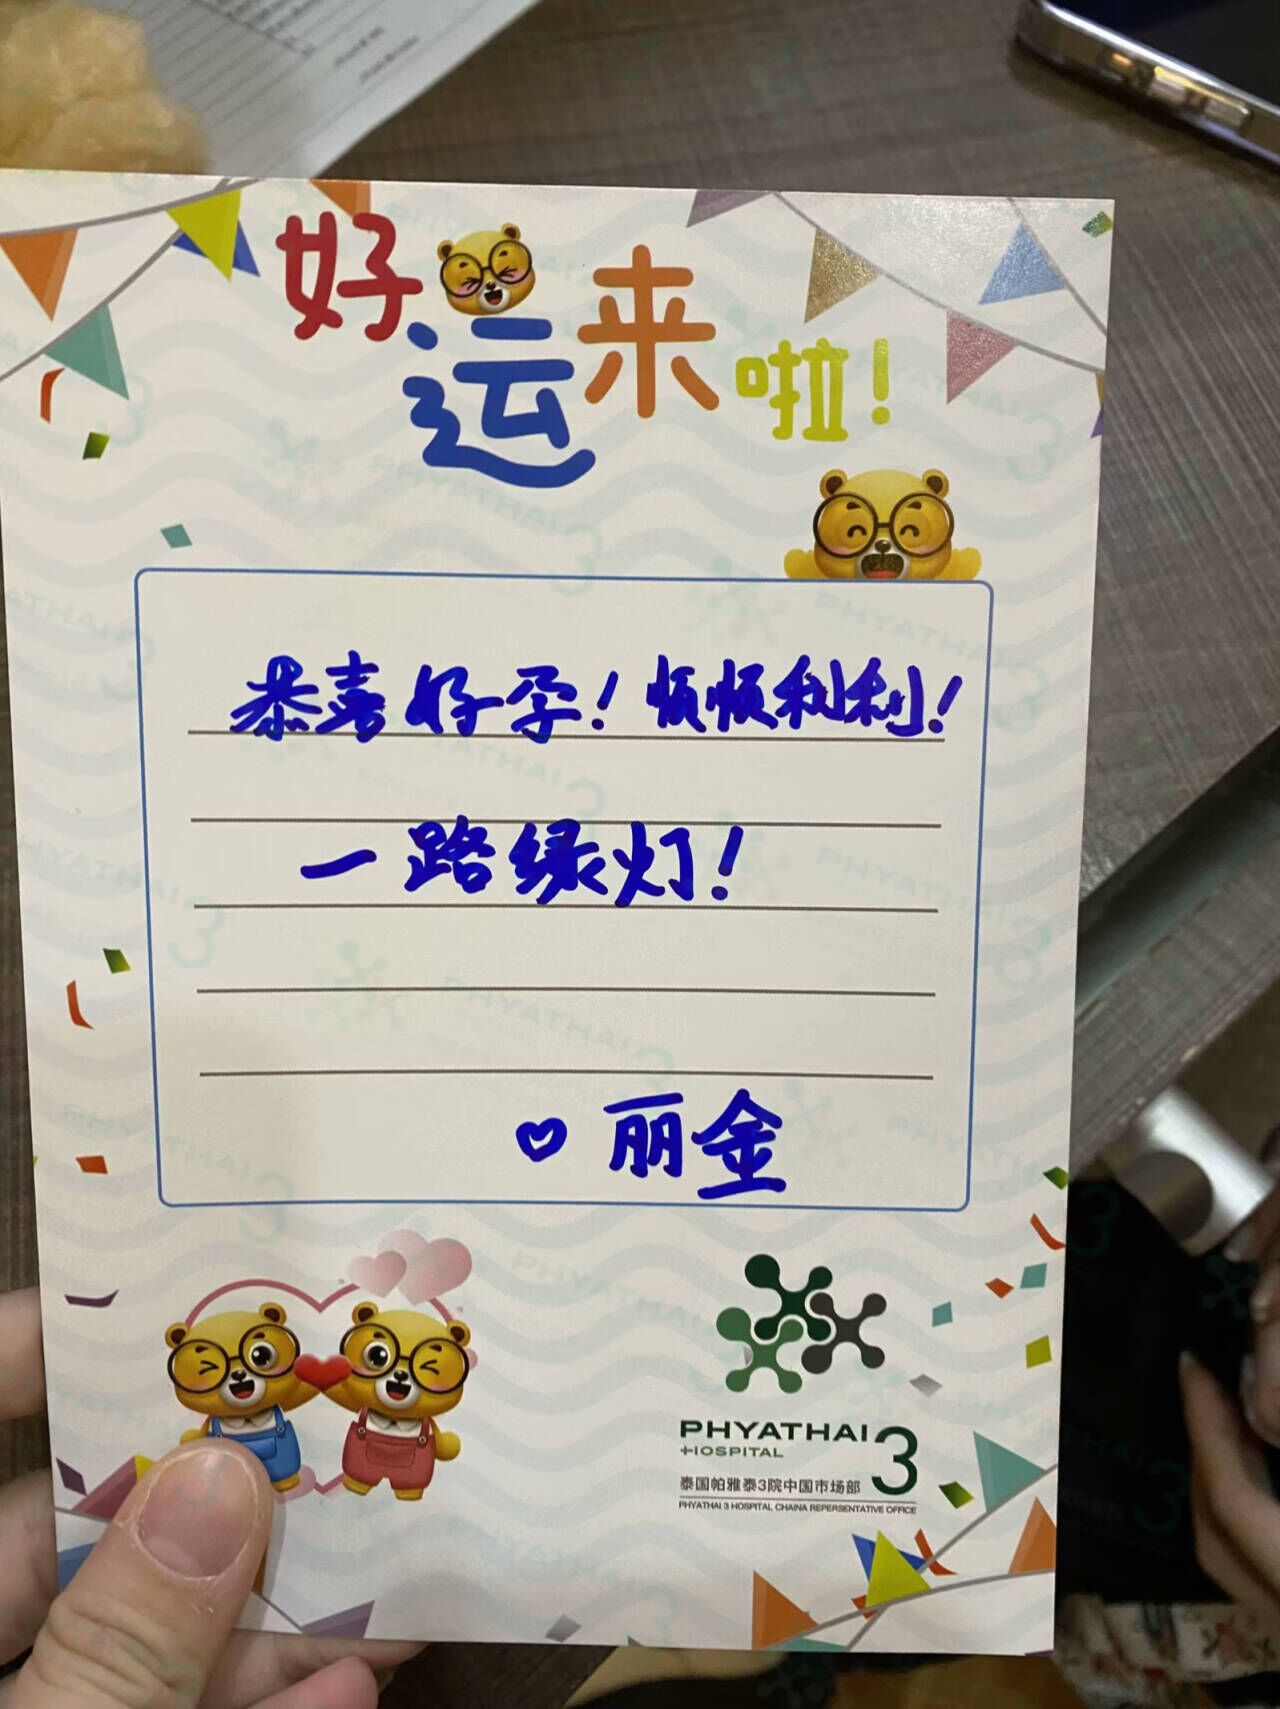 好运来啦!
恭喜好孕!顺顺利利!
一路绿灯!
♡ 丽金
PHYATHAI 3
HOSPITAL
泰国帕雅泰3院中国市场部
PHYATHAI 3 HOSPITAL CHAINA REPERSENTATIVE OFFICE